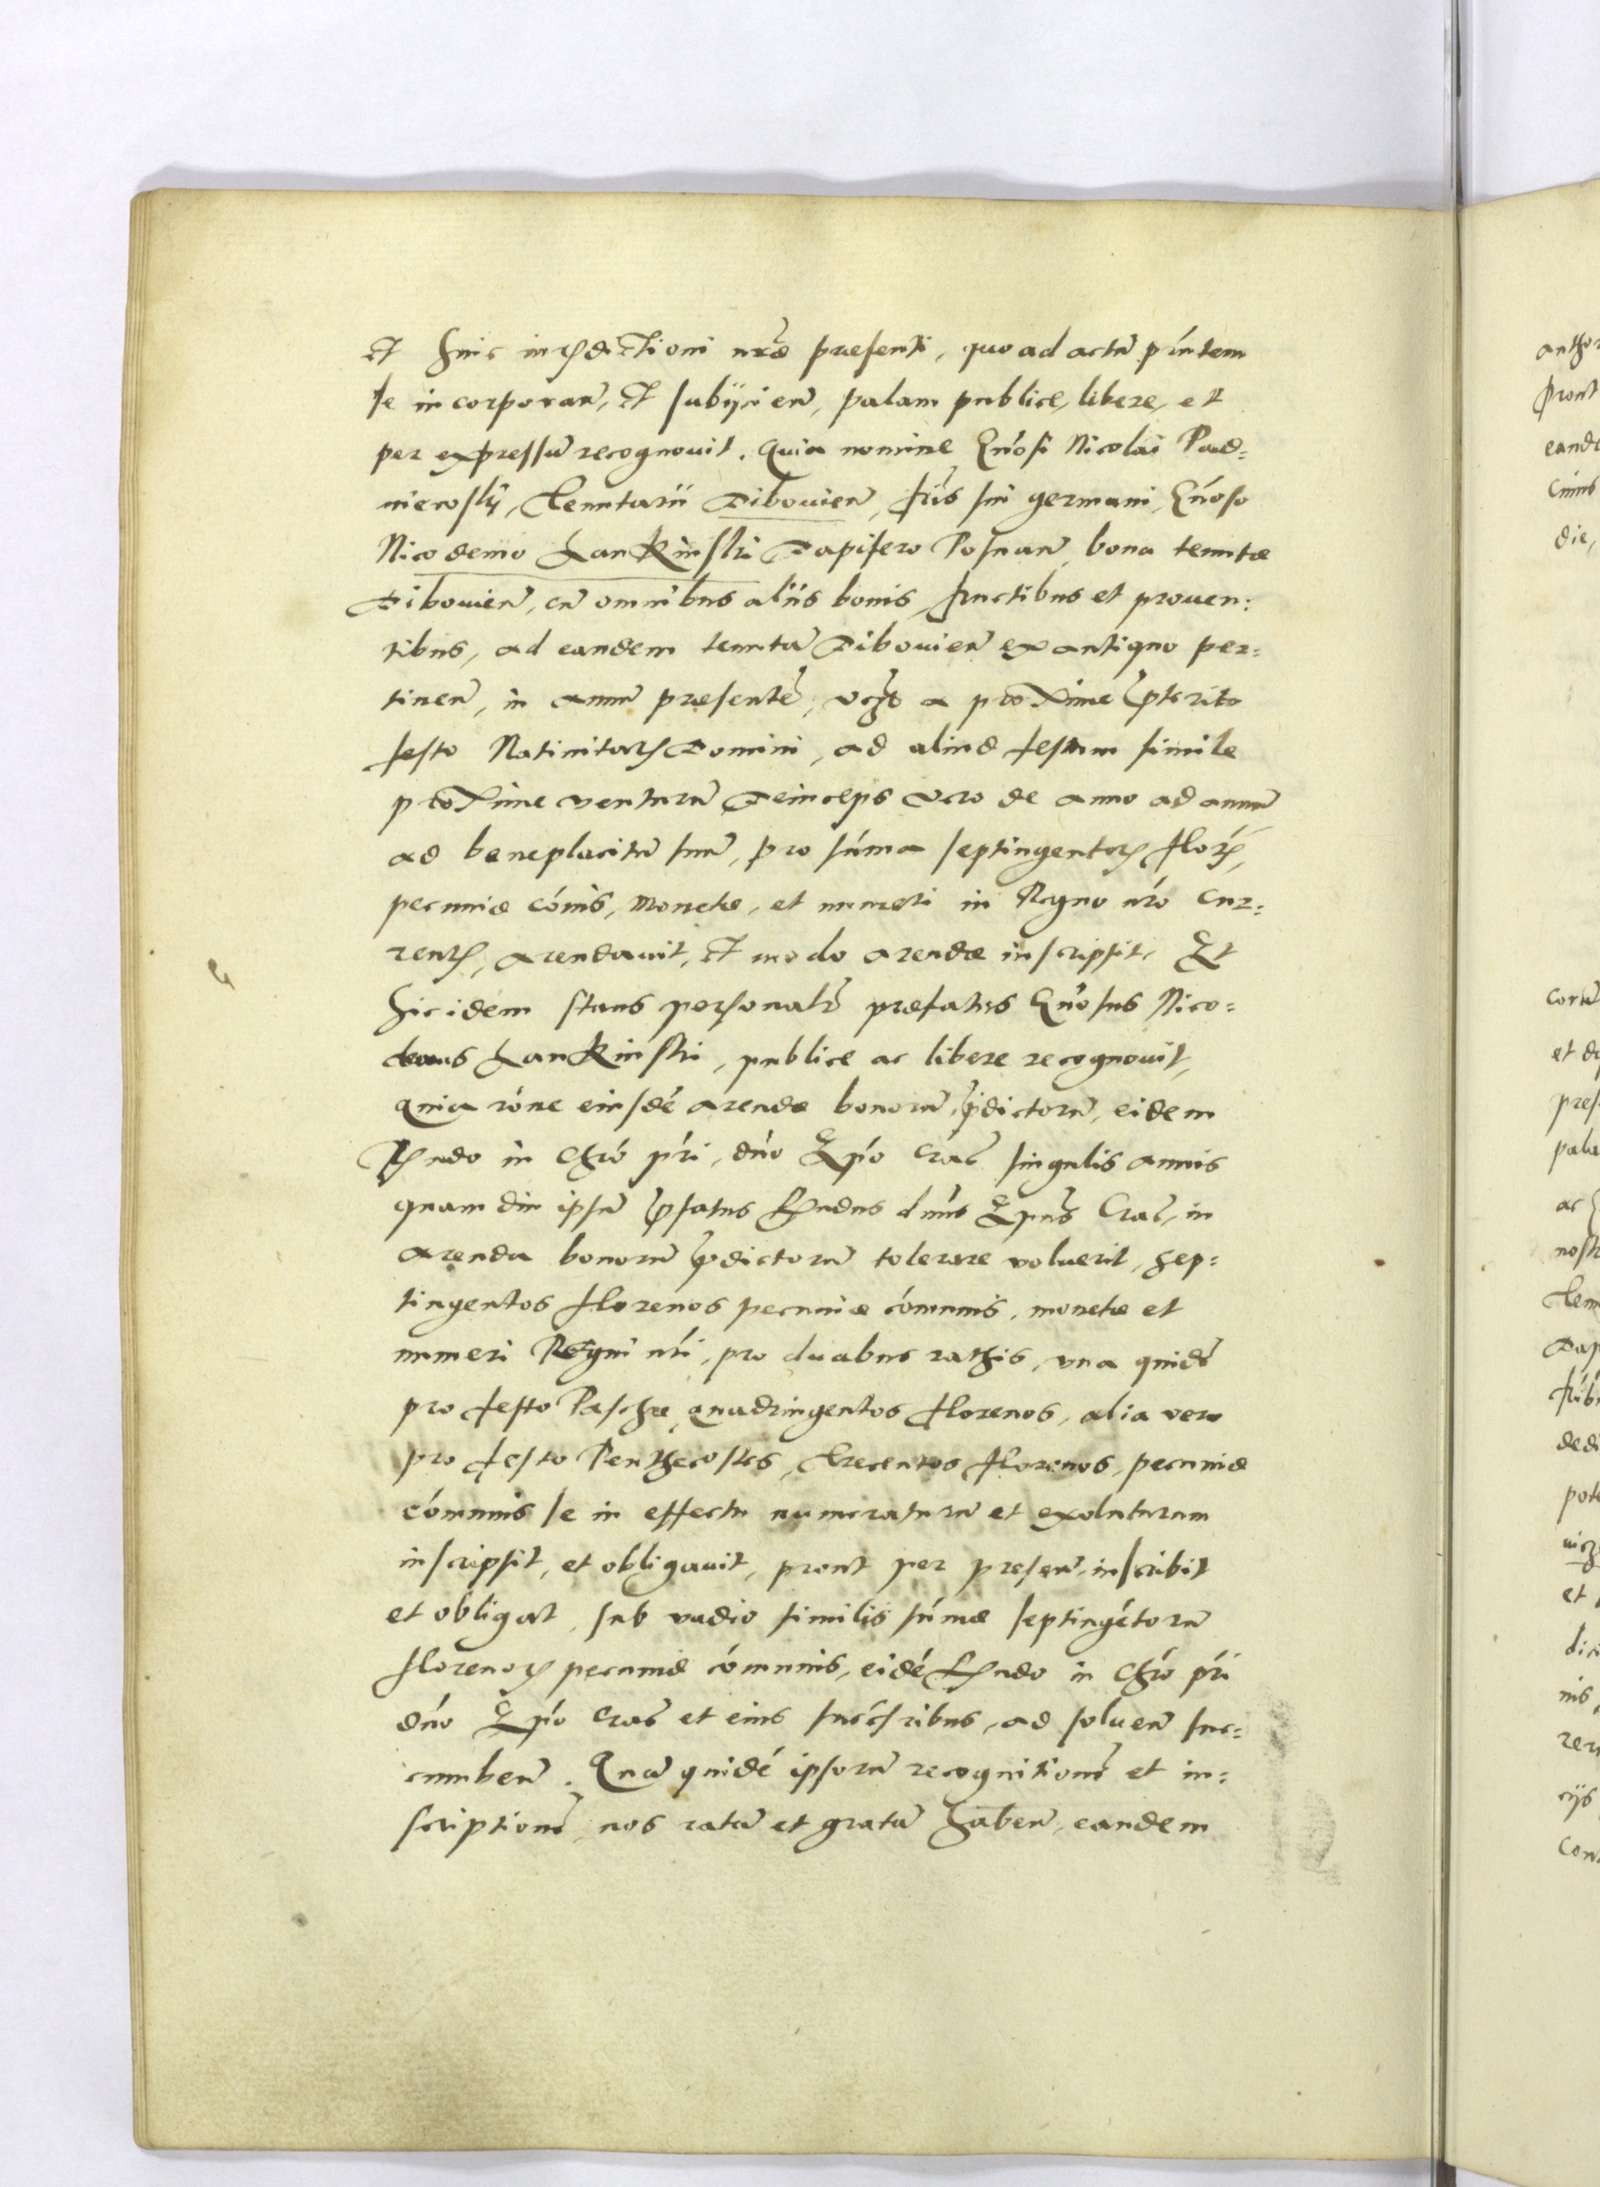 Et huic iurisdictioni nr̃æ præsenti, quo ad actũ pńtem
se incorporan̄, Et subijcien̄, palam publice, libere, et
per expressũ recognouit. Quia nomine Gńosi Nicolai Pad=
niewskj, Tenutarii Dibouien̄, fr̃is sui germani, Gńoso
Nicodemo LanKinski Dapifero Posnan̄, bona tenutæ
Dibouien̄, cũ omnibus aliis bonis, fructibus et prouen:
tibus, ad eandem tenutã Dibouien̄ ex antiquo per=
tinen̄, in annũ præsentẽ, vcz̃ a proxime p̃terito
festo Natiuitatis Domini, ad aliud festum simile
proxime venturũ Deinceps vero de anno ad annũ
ad beneplacitũ suũ, pro súma septingentor̃ flor̃,
pecuniæ cóm̃is, monetæ, et numeri in Regno nŕo cur=
rentis, arendauit, Et modo arendæ inscripsit, Et
hic idem stans personalr̃ præfatus Gńosus Nico=
demus LanKinski, publice ac libere recognouit,
quia róne eiusdẽ arendæ bonorũ p̃dictorũ, eidem
Rñdo in Chŕo pŕi, dńo Epó Crac̃ singulis annis
quamdiu ipsũ p̃fatus Rñdus dńus Epũs Crac̃, in
arenda bonorũ p̃dictorũ tolerare voluerit, sep=
tingentos florenos pecuniæ cómunis, monetæ et
numeri Regni nŕi, pro duabus rathis, vna quidẽ
pro festo Paschæ quadringentos florenos, alia vero
pro festo Penthecostes, trecentos florenos, pecuniæ
cómunis se in effectu numeraturũ et exoluturum
inscripsit, et obligauit, prout per presen̄, inscribit
et obligat, sub vadio similis súmæ septingẽtorũ
florenor̃ pecuniæ cómunis, eidẽ Rñdo in Chŕo pŕi
dńo Epó Crac̃ et eius succ̃ribus, ad soluen̄ suc=
cumben̄. Quã quidẽ ipsorũ recognitionẽ et in=
scriptionẽ, nos ratã et gratã haben̄, eandem